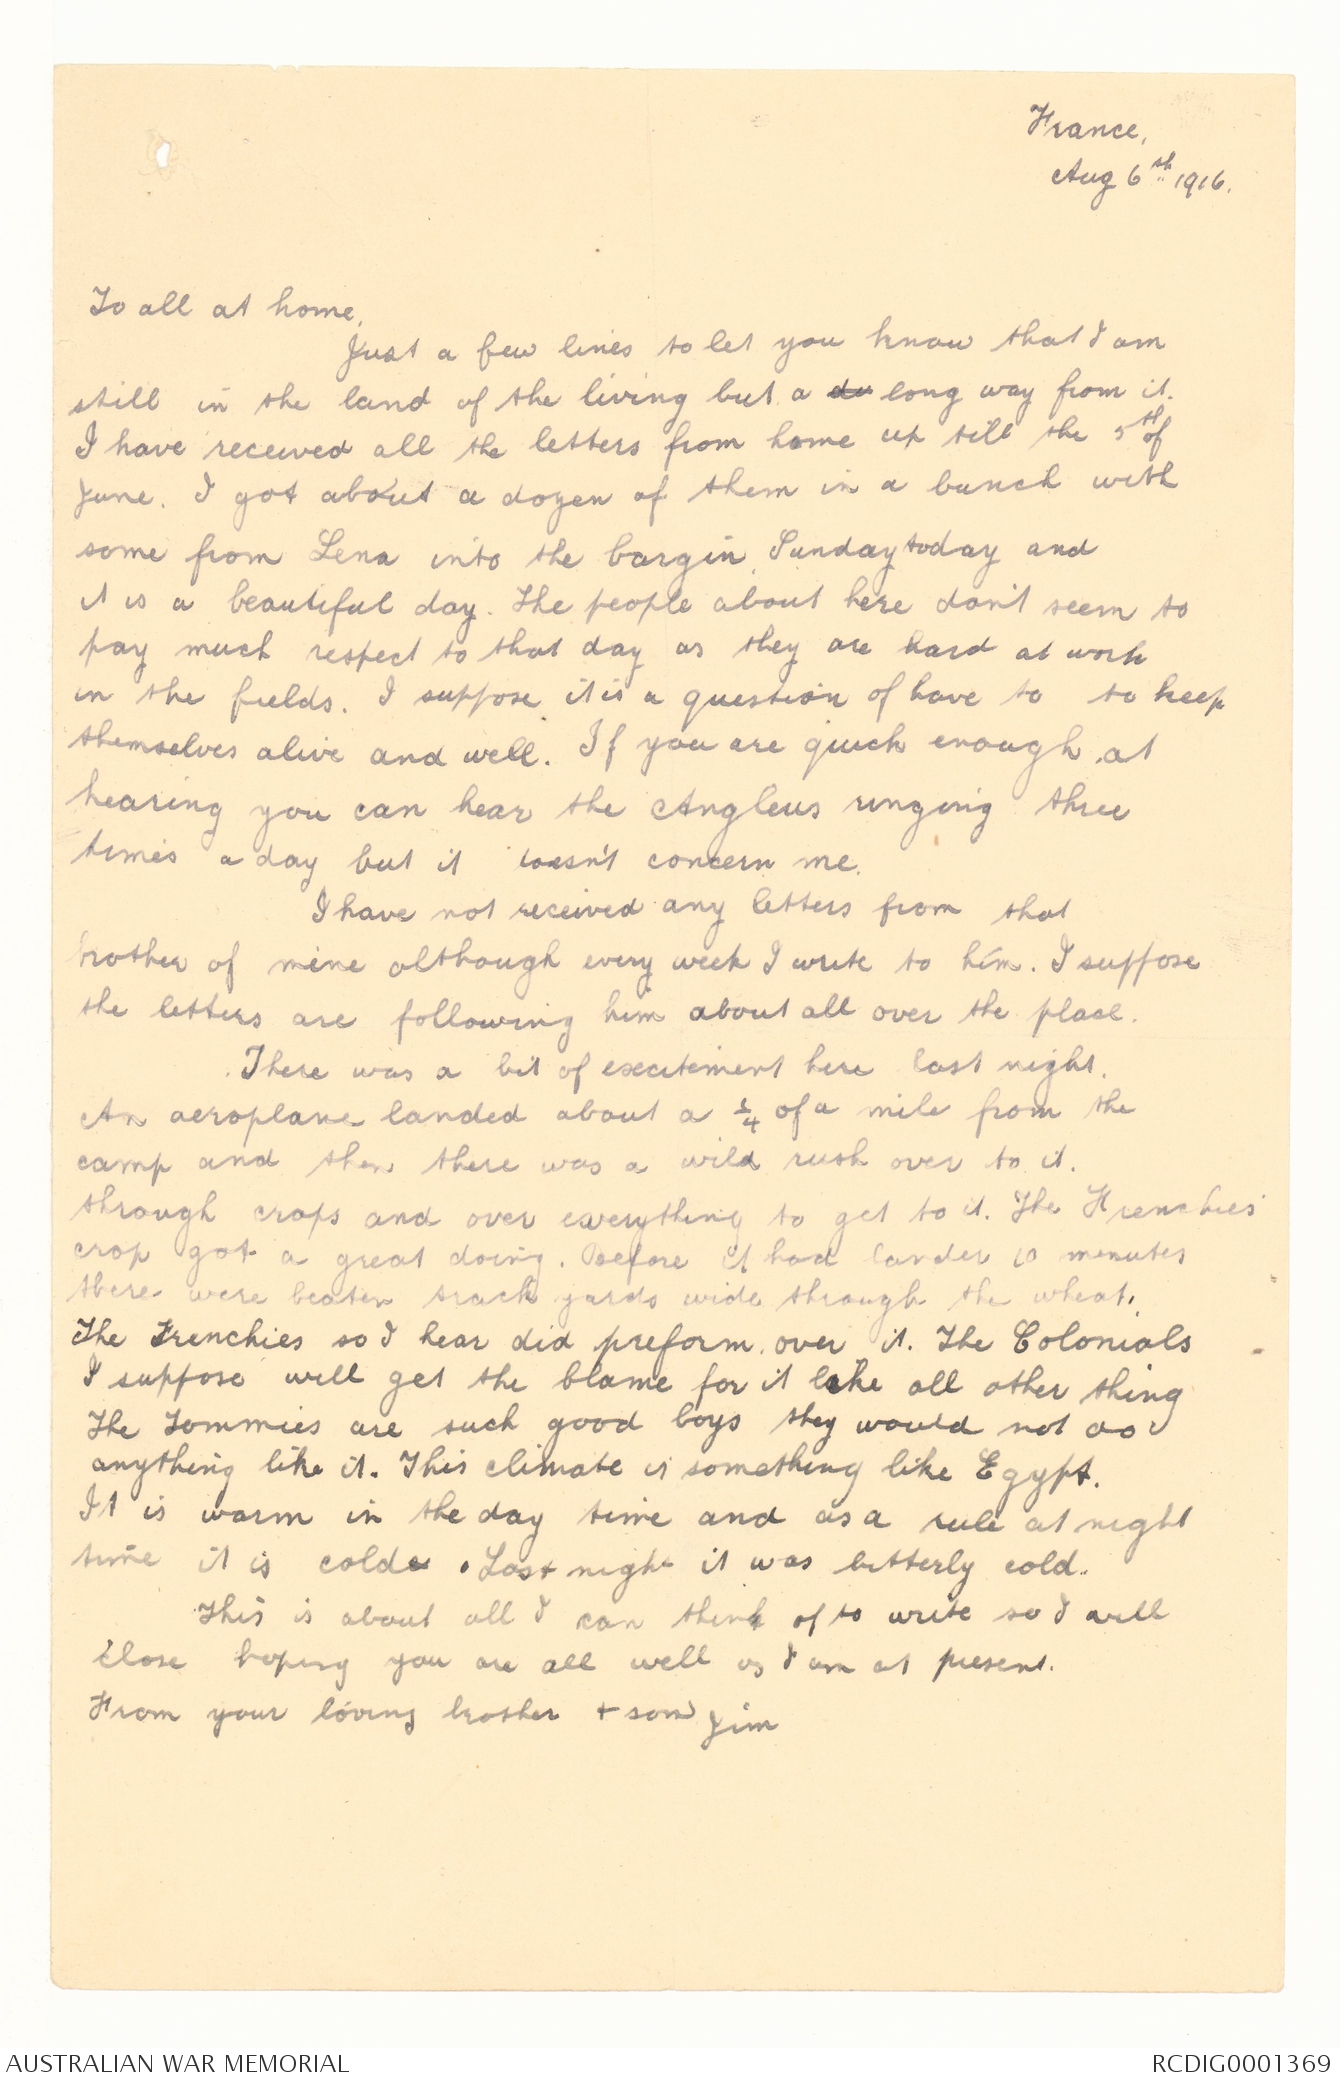 France,
Aug 6th 1916.
To all at home,
Just a few lines to let you know that I am
still in the land of the living but a du long way from it.
I have received all the letters from home up till the 5th of
June. I got about a dozen of them in a bunch with
some from Lena into the bargin. Sunday today and
it is a beautiful day. The people about here don't seem to
pay much respect to that day as they are hard at work
in the fields. I suppose it is a question of have to to keep
themselves alive and well. If you are quick enough at
hearing you can hear the Angleus ringing three
times a day but it doesn't concern me.
I have not received any letters from that
brother of mine although every week I write to him. I suppose
the letters are following him about all over the place.
There was a bit of excitement here last night.
An aeroplane landed about a 3/4 of a mile from the
camp and then there was a wild rush over to it.
through crops and over everything to get to it. The Frenchies'
crop got a great doing. Before it had lander 10 minutes
there were beaten track yards wide through the wheat.
The Frenchies so I hear did preform over it. The Colonials
I suppose will get the blame for it like all other thing
The Tommies are such good boys they would not do
anything like it. This climate is something like Egypt.
It is warm in the day time and as a rule at night
time it is cold. Last night it was bitterly cold.
This is about all I can think of to write so I will
close hoping you are all well as I am at present.
From your loving brother + son Jim
AUSTRALIAN WAR MEMORIAL
RCDIG0001369